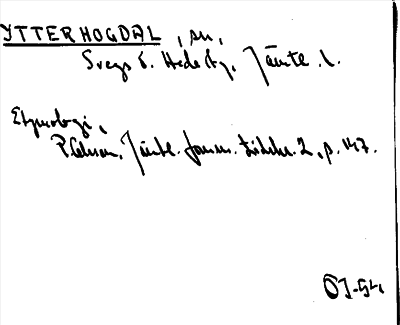 YTTERHOGDAL, sn,
Svegs t. Hede fg. Jämtl. l.
Etymologi,
P. Jämtl. fornm. tidskr. 2, p. 147.
OJ-54